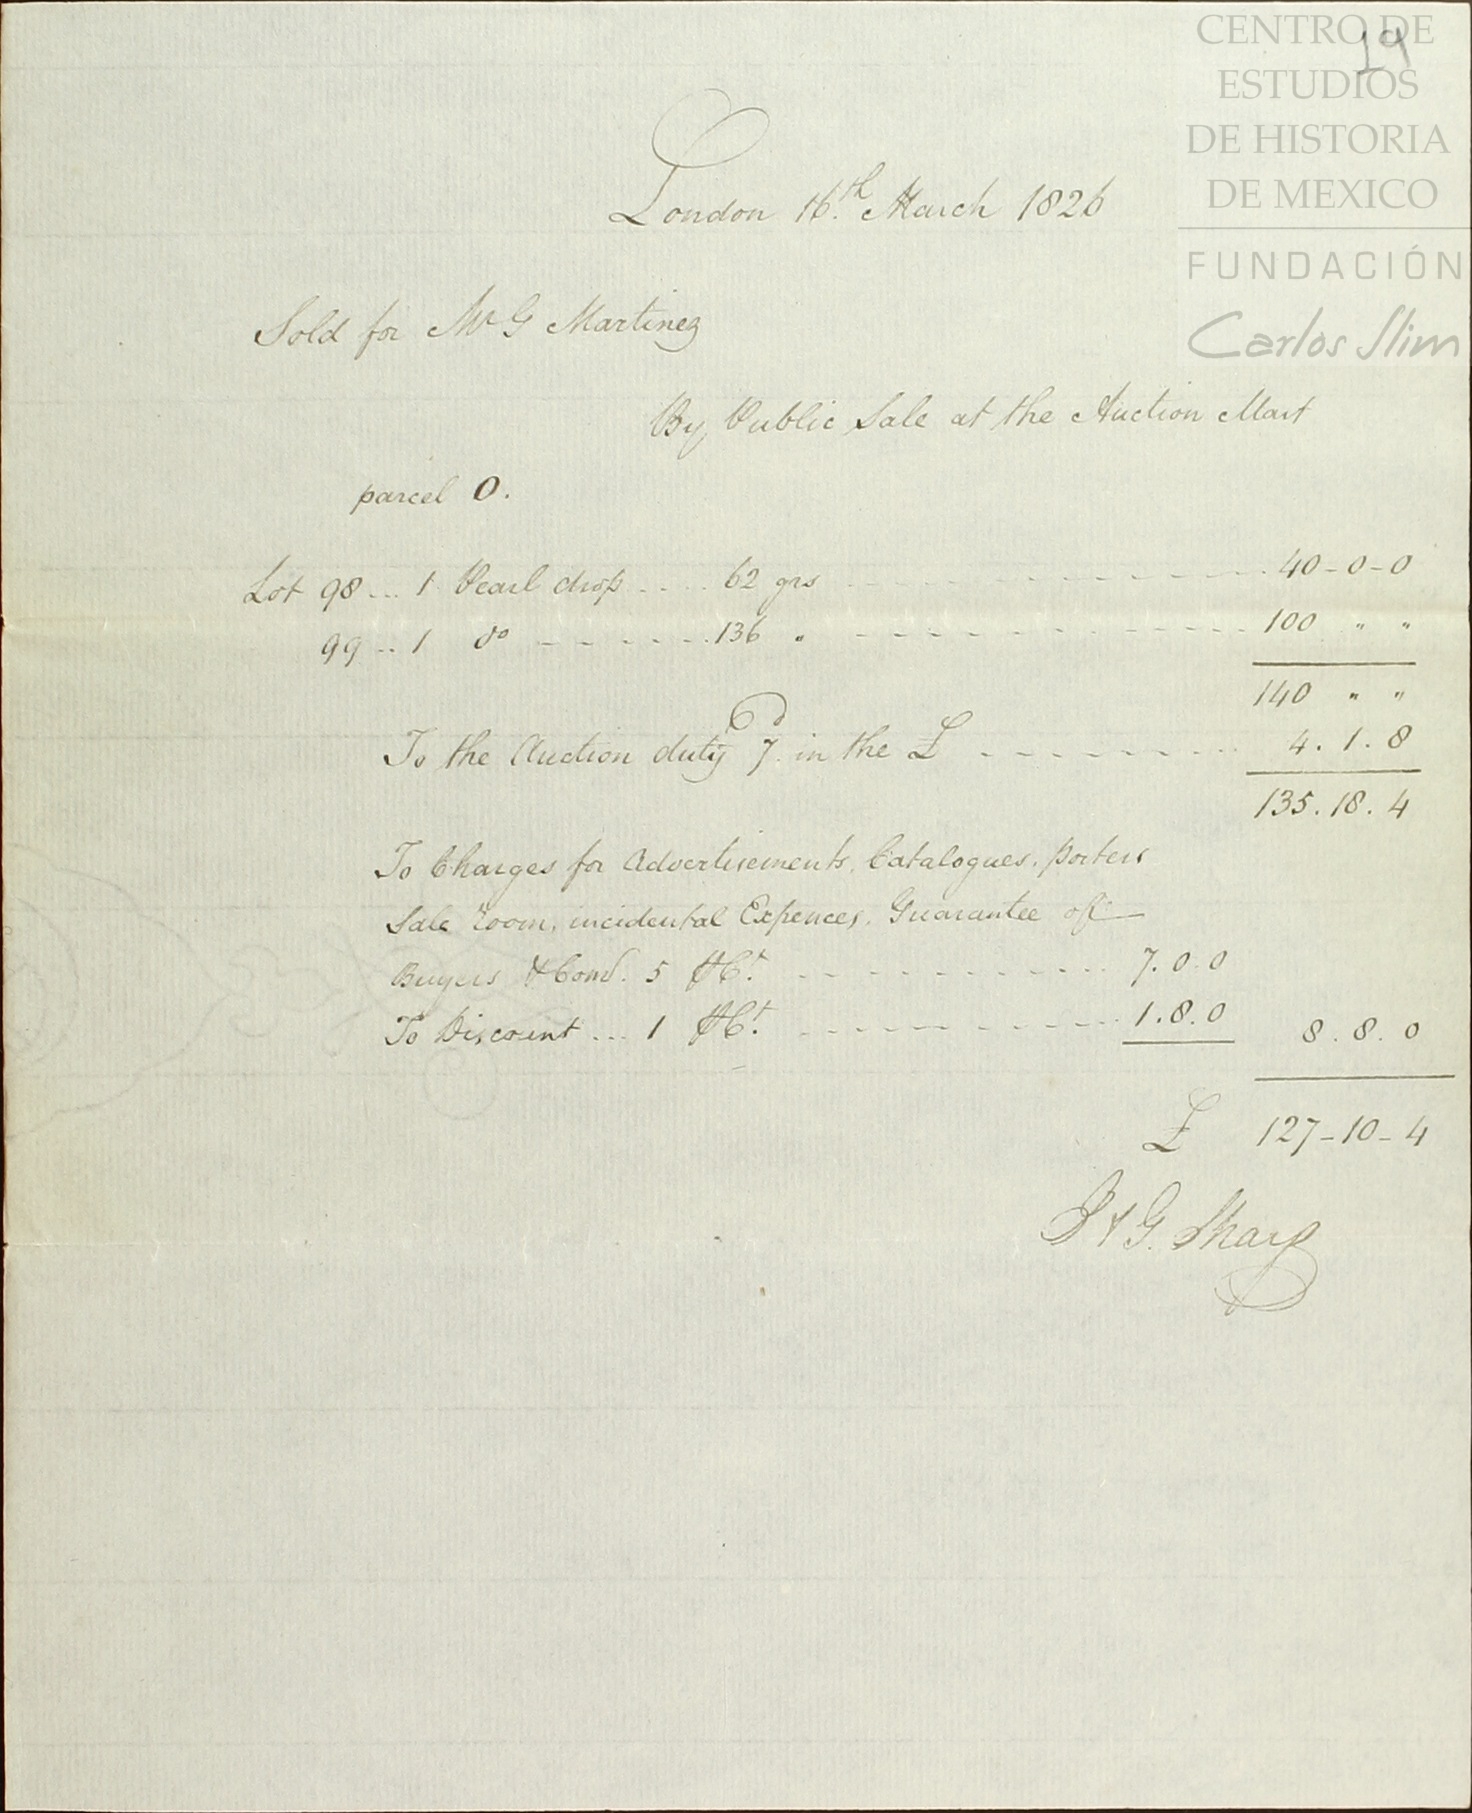 CENTRO DE
ESTUDIOS
DE HISTORIA
DE MEXICO
FUNDACIÓN
Carlos Slim
19
London 16.th March 1826
Sold for Mr G Martinez
By Public Sale at the Auction Mart
parcel O.
Lot 98 ... 1 Pearl drop .... 62 grs - - - - 40-0-0
99 .. 1 do - - - - - - 136 " - - - - 100 " "
140 " "
To the Auction duty 7d in the £ - - - - 4.1.8
135.18.4
To Charges for Advertisements, Catalogues, porters
Sale room, incidental Expences, Guarantee of
Buyers & Comn. 5 ⅌Ct. - - - - 7.0.0
To Discount ... 1 ⅌Ct. - - - - 1.8.0 8.8.0
£ 127-10-4
& G. Sharp